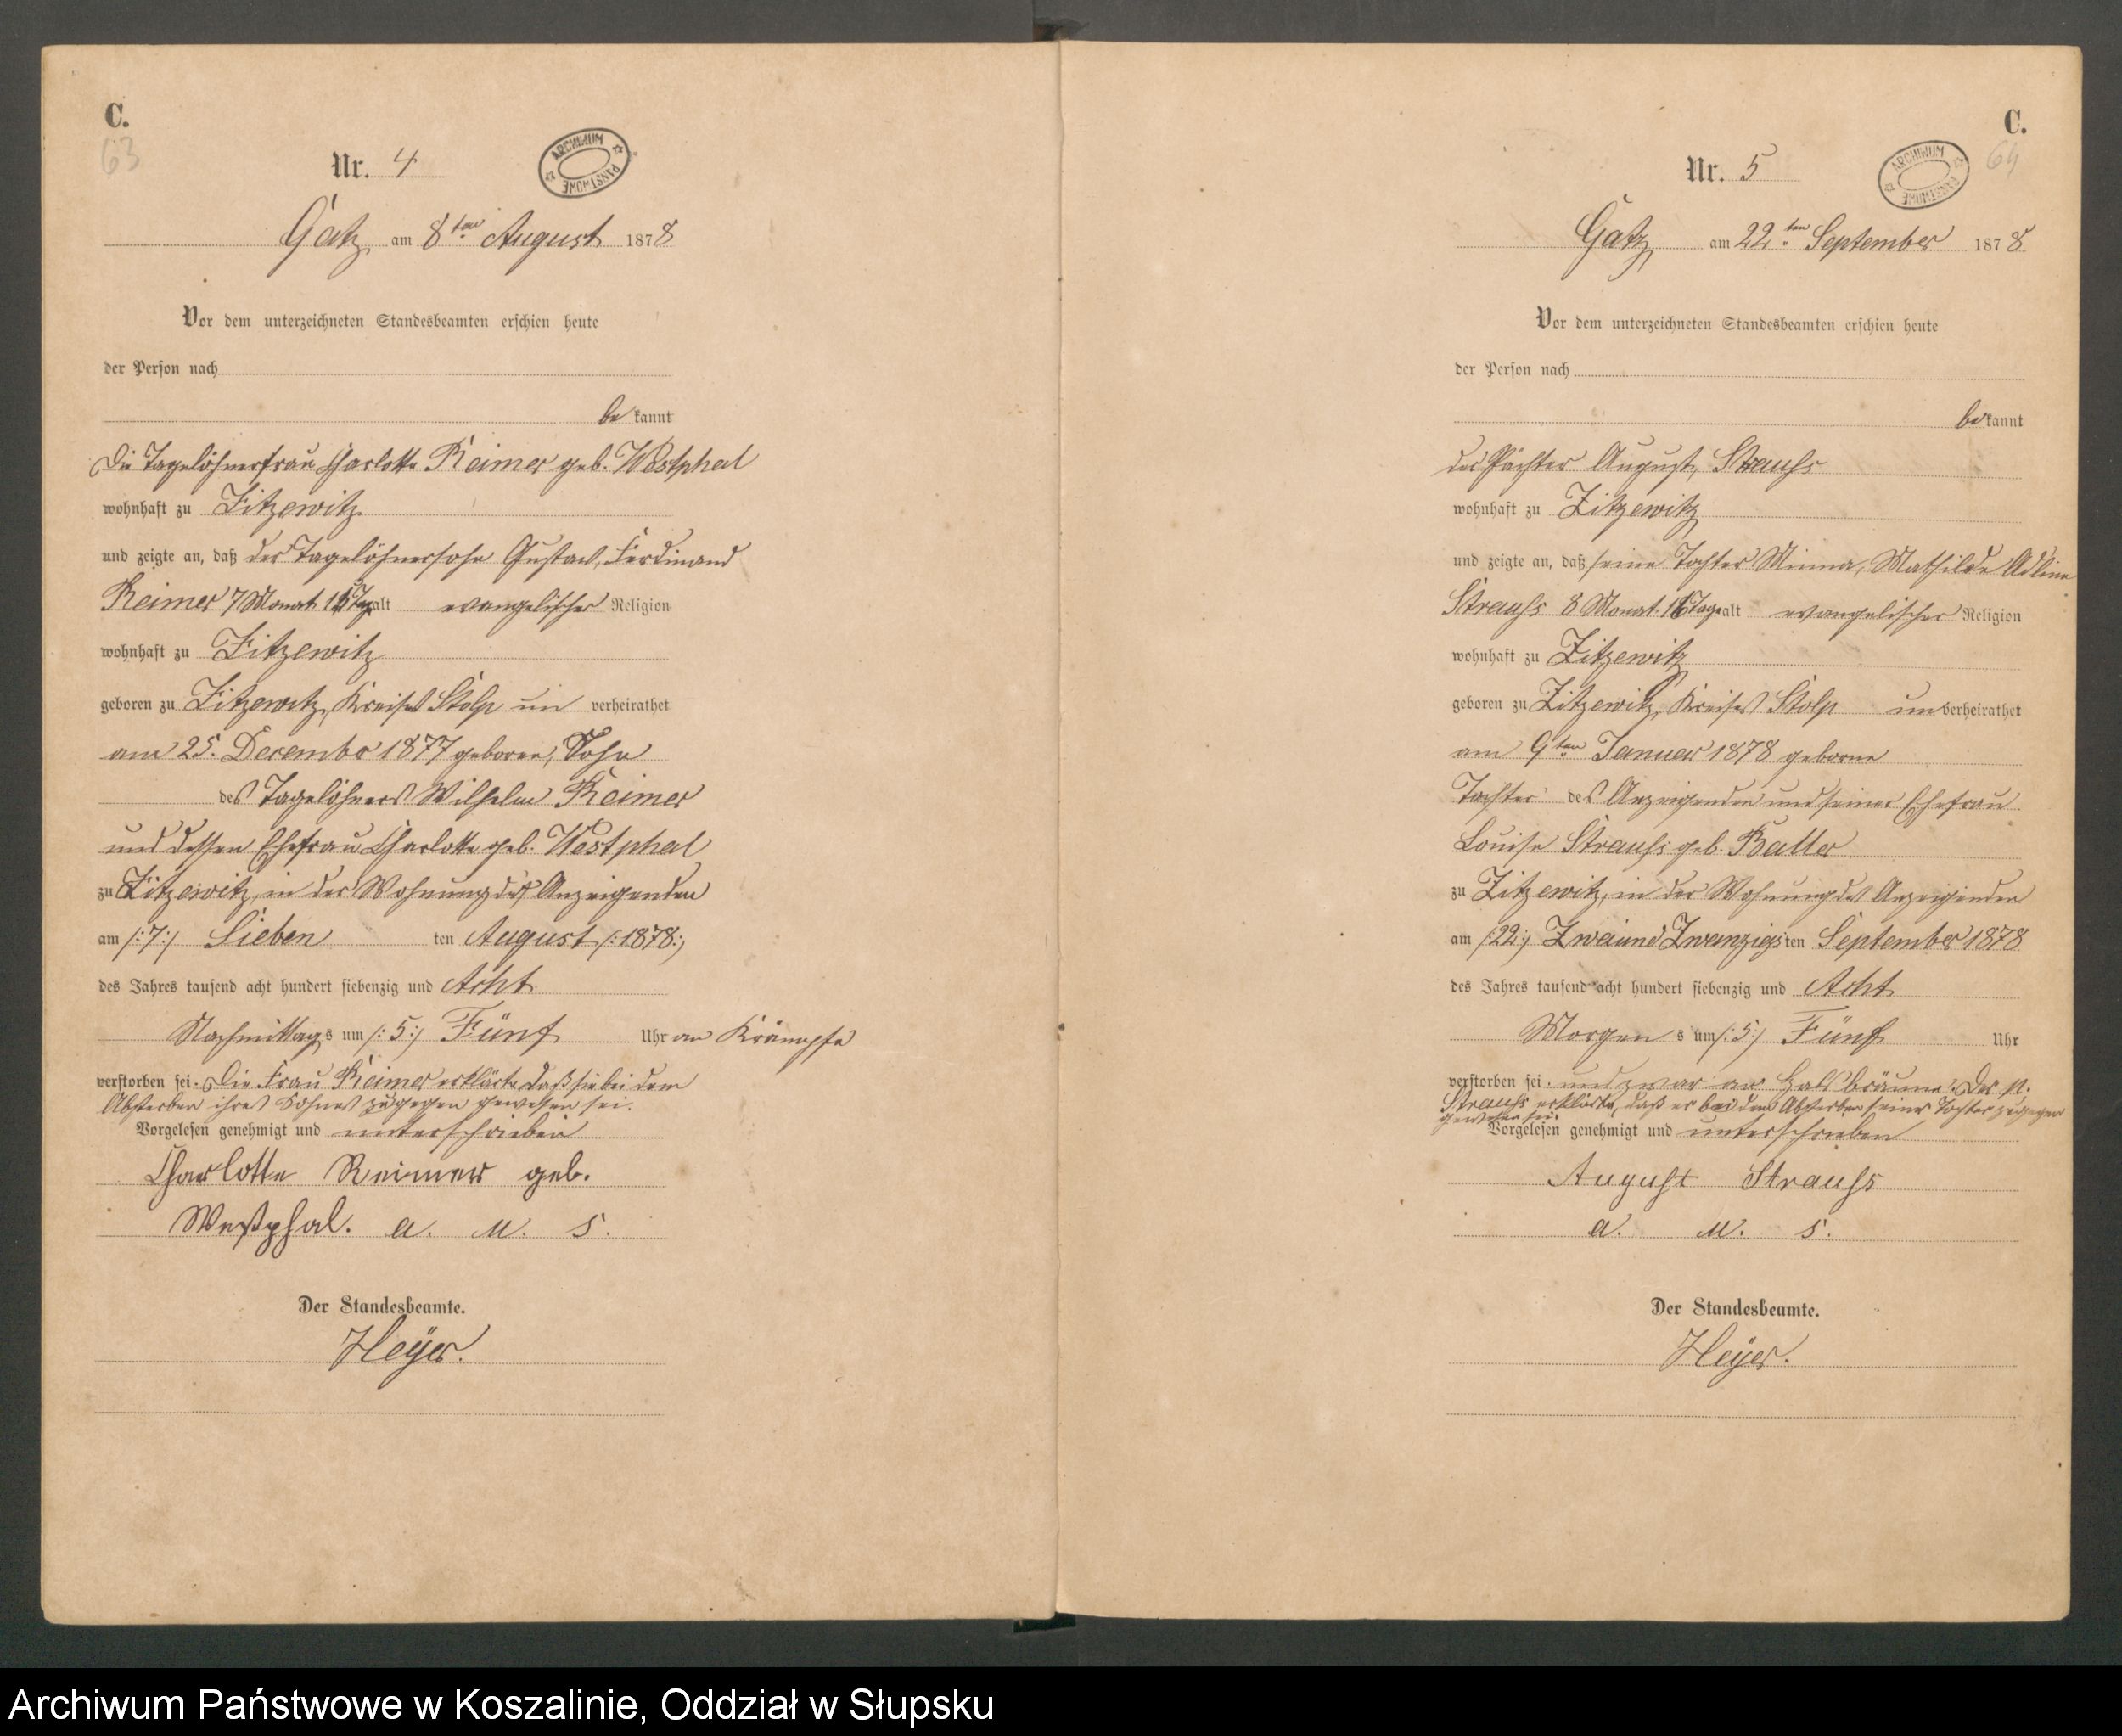 C.
63
Nr. 4
ARCHIWUM PAŃSTWOWE
Gatz am 8ten August 1878
Vor dem unterzeichneten Standesbeamten erschien heute
der Person nach
bekannt
Die Tagelöhnerfrau Charlotte Reimer geb. Westphal
wohnhaft zu Zitzewitz
und zeigte an, daß der Tagelöhnersohn Gustav, Ferdinand
Reimer 7 Monat Tage alt evangelischer Religion
wohnhaft zu Zitzewitz
geboren zu Zitzewitz, Kreises Stolp un verheirathet
am 25. December 1877 geboren, Sohn
des Tagelöhners Wilhelm Reimer
und dessen Ehefrau Charlotte geb. Westphal
zu Zitzewitz, in der Wohnung des Anzeigenden
am /:7:/ Sieben ten August /:1878:/
des Jahres tausend acht hundert siebenzig und Acht
Nachmittags um /:5:/ Fünf Uhr an Krämpfe
verstorben sei. Die Frau Reimer erklärte daß sie bei dem
Absterben ihres Sohnes zugegen gewesen sei.
Vorgelesen genehmigt und unterschrieben
Charlotte Reimer geb.
Westphal. a. u. s.
Der Standesbeamte.
Heyer.
C.
64
Nr. 5
ARCHIWUM PAŃSTWOWE
Gatz am 22ten September 1878
Vor dem unterzeichneten Standesbeamten erschien heute
der Person nach
bekannt
der Pächter August, Strauss
wohnhaft zu Zitzewitz
und zeigte an, daß seine Tochter Minna, Mathilde Adline
Strauss 8 Monat Tage alt evangelischer Religion
wohnhaft zu Zitzewitz
geboren zu Zitzewitz, Kreises Stolp unverheirathet
am 9ten Januar 1878 geborne
Tochter des Anzeigenden und seiner Ehefrau
Louise Strauss geb.
zu Zitzewitz, in der Wohnung des Anzeigenden
am /:22:/ Zweiund Zwanzigsten September 1878
des Jahres tausend acht hundert siebenzig und Acht
Morgen s um /:5:/ Fünf Uhr
verstorben sei. und zwar an Halsbräune. Der p.
Strauss erklärte, daß er bei dem Absterben seiner Tochter zugegen
gewesen sei.
Vorgelesen genehmigt und unterschrieben
August Strauss
a. u. s.
Der Standesbeamte.
Heyer.
Archiwum Państwowe w Koszalinie, Oddział w Słupsku